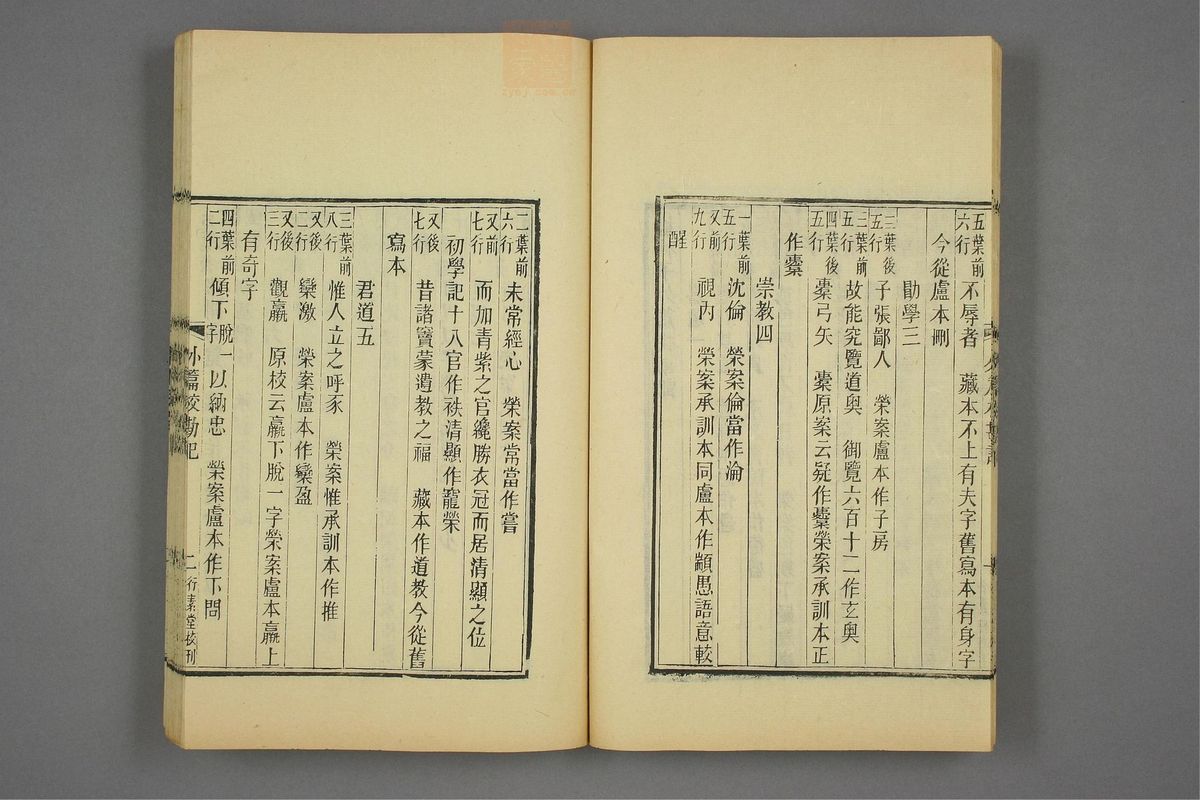 五葉前六行　不辱者　藏本不上有夫字舊寫本有身字
今從盧本刪
勖學三
三葉後五行　子張鄙人　榮案盧本作子房
三葉前五行　故能究覽道奥　御覽六百十二作玄奥
四葉後五行　櫜弓矢　櫜原案云疑作櫜榮案承訓本正
作櫜
崇教四
一葉前五行　沈倫　榮案倫當作淪
又前九行　視内　榮案承訓本同盧本作顓愚語意較
醒
二葉前六行　未常經心　榮案常當作嘗
又前七行　而加青紫之官纔勝衣冠而居清顯之位
初學記十八官作袟清顯作寵榮
又後七行　昔諸竇蒙遺教之福　藏本作道教今從舊
寫本
君道五
三葉前八行　惟人立之呼豕　榮案惟承訓本作推
又後二行　欒激　榮案盧本作欒盈
又後三行　觀羸　原校云羸下脫一字榮案盧本羸上
有奇字
四葉前二行　傾下脫一字以納忠　榮案盧本作下問
外篇校勘記　二　行素堂校刊